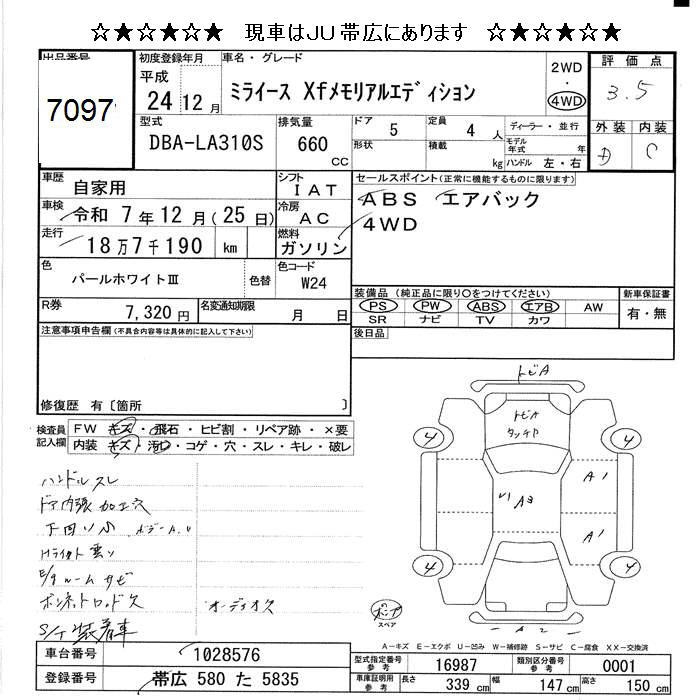 ☆★☆★☆★ 現車はJU帯広にあります ☆★☆★☆★
出品番号
7097
初度登録年月
平成
24 12 月
車名・グレード
ミライース Xfメモリアルエディション
2WD
4WD
評価点
3.5
外装 内装
D C
型式
DBA-LA310S
排気量
660
cc
ドア 5
形状
定員 4 人
積載 kg
ディーラー・並行
モデル年式 年
ハンドル 左・右
車歴
自家用
シフト
IAT
セールスポイント(正常に機能するものに限ります)
ABS エアバック
4WD
車検
令和 7年12月(25日)
冷房
AC
走行
18万7千190 km
燃料
ガソリン
色
パールホワイトⅢ
色替
色コード
W24
装備品 (純正品に限り○をつけてください)
PS PW ABS エアB AW
SR ナビ TV カワ
新車保証書
有・無
R券
7,320 円
名変通知期限
月 日
後日品
注意事項申告欄(不具合内容等は具体的に記入して下さい)
修復歴 有〔箇所 〕
検査員記入欄
FW キズ・飛石・ヒビ割・リペア跡・×要
内装 キズ・汚れ・コゲ・穴・スレ・キレ・破レ
ハンドルスレ
ドア内張加工穴
下回り小 ボデーA.U
Hライト曇り
E/gルームサビ
ボンネットロッド欠 オーディオ欠
S/T装着車
トビA
トビA
タッチア
4
4
A1
A1
4
4
スペア
A2
A-キズ E-エクボ U-凹み W-補修跡 S-サビ C-腐食 XX-交換済
車台番号
1028576
登録番号
帯広 580 た 5835
型式指定番号
参考
16987
類別区分番号
参考
0001
車庫証明用
参考
長さ 339 cm
幅 147 cm
高さ 150 cm